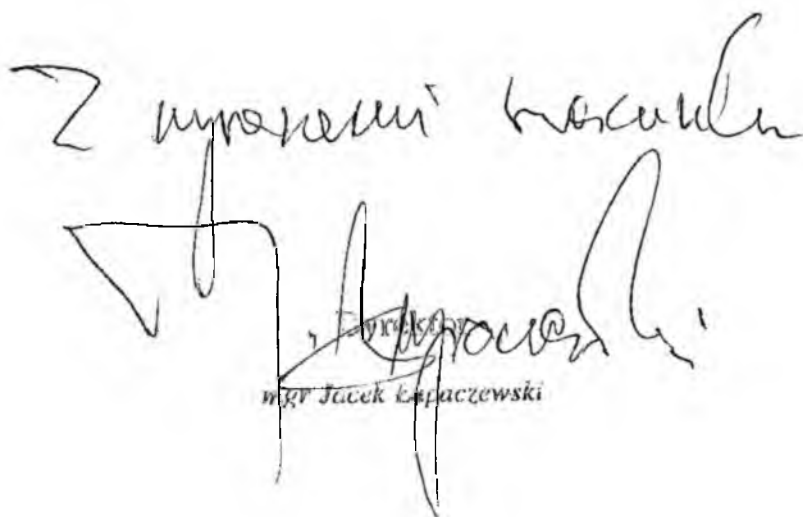 Z wyrazami szacunku
Dyrektor
mgr Jacek Łapaczewski